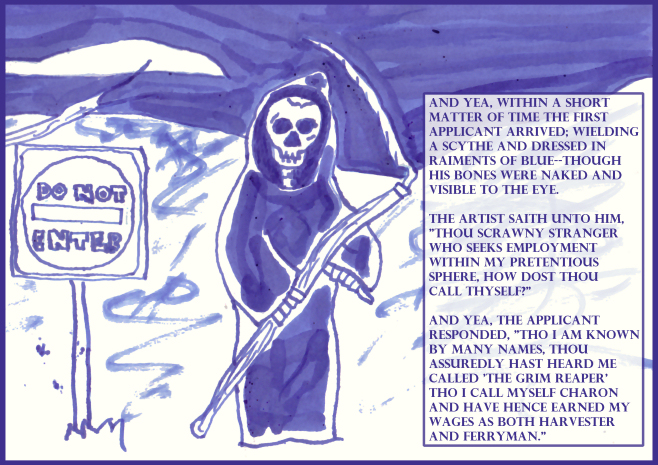 DO NOT
ENTER
AND YEA, WITHIN A SHORT
MATTER OF TIME THE FIRST
APPLICANT ARRIVED; WIELDING
A SCYTHE AND DRESSED IN
RAIMENTS OF BLUE--THOUGH
HIS BONES WERE NAKED AND
VISIBLE TO THE EYE.
THE ARTIST SAITH UNTO HIM,
"THOU SCRAWNY STRANGER
WHO SEEKS EMPLOYMENT
WITHIN MY PRETENTIOUS
SPHERE, HOW DOST THOU
CALL THYSELF?"
AND YEA, THE APPLICANT
RESPONDED, "THO I AM KNOWN
BY MANY NAMES, THOU
ASSUREDLY HAST HEARD ME
CALLED 'THE GRIM REAPER'
THO I CALL MYSELF CHARON
AND HAVE HENCE EARNED MY
WAGES AS BOTH HARVESTER
AND FERRYMAN."